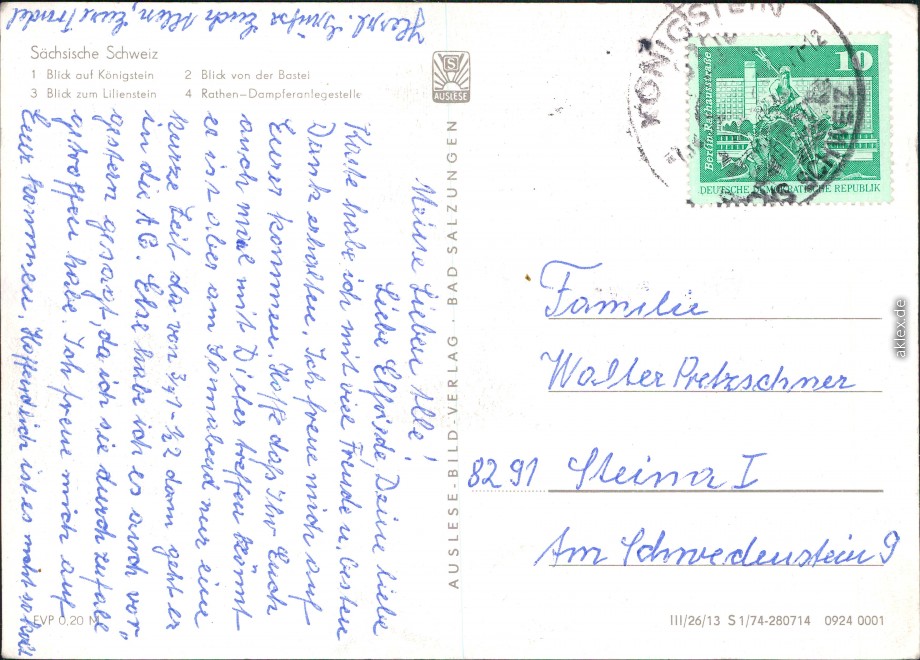 Sächsische Schweiz
1 Blick auf Königstein 2 Blick von der Bastei
3 Blick zum Lilienstein 4 Rathen-Dampferanlegestelle
AUSLESE
Meine Lieben Alle!
Liebe Elfriede, Deine liebe
Karte habe ich mit viel Freude u. besten
Dank erhalten. Ich freue mich auf
Euer kommen. Hoffe daß Ihr Euch
auch mal mit Dieter treffen könnt
er ist aber am Sonnabend nur eine
kurze Zeit da von bis 1/2 dann geht er
in die AG. Else habe ich es auch vor,
gestern gesagt, da ich sie durch zufall
getroffen habe. Ich freue mich auf
Euer kommen. Hoffendlich ist es nicht so kalt
Herzl. Grüße Euch Allen, Eure Trudel
AUSLESE-BILD-VERLAG - BAD SALZUNGEN
KÖNIGSTEIN
SÄCHS SCHWEIZ
10
Berlin-Rathausstraße
DEUTSCHE DEMOKRATISCHE REPUBLIK
Familie
Walter Pretzschner
8291 Steina I
Am Schwedenstein 9
EVP 0.20 M
III/26/13 S 1/74-280714 0924 0001
aklex.de